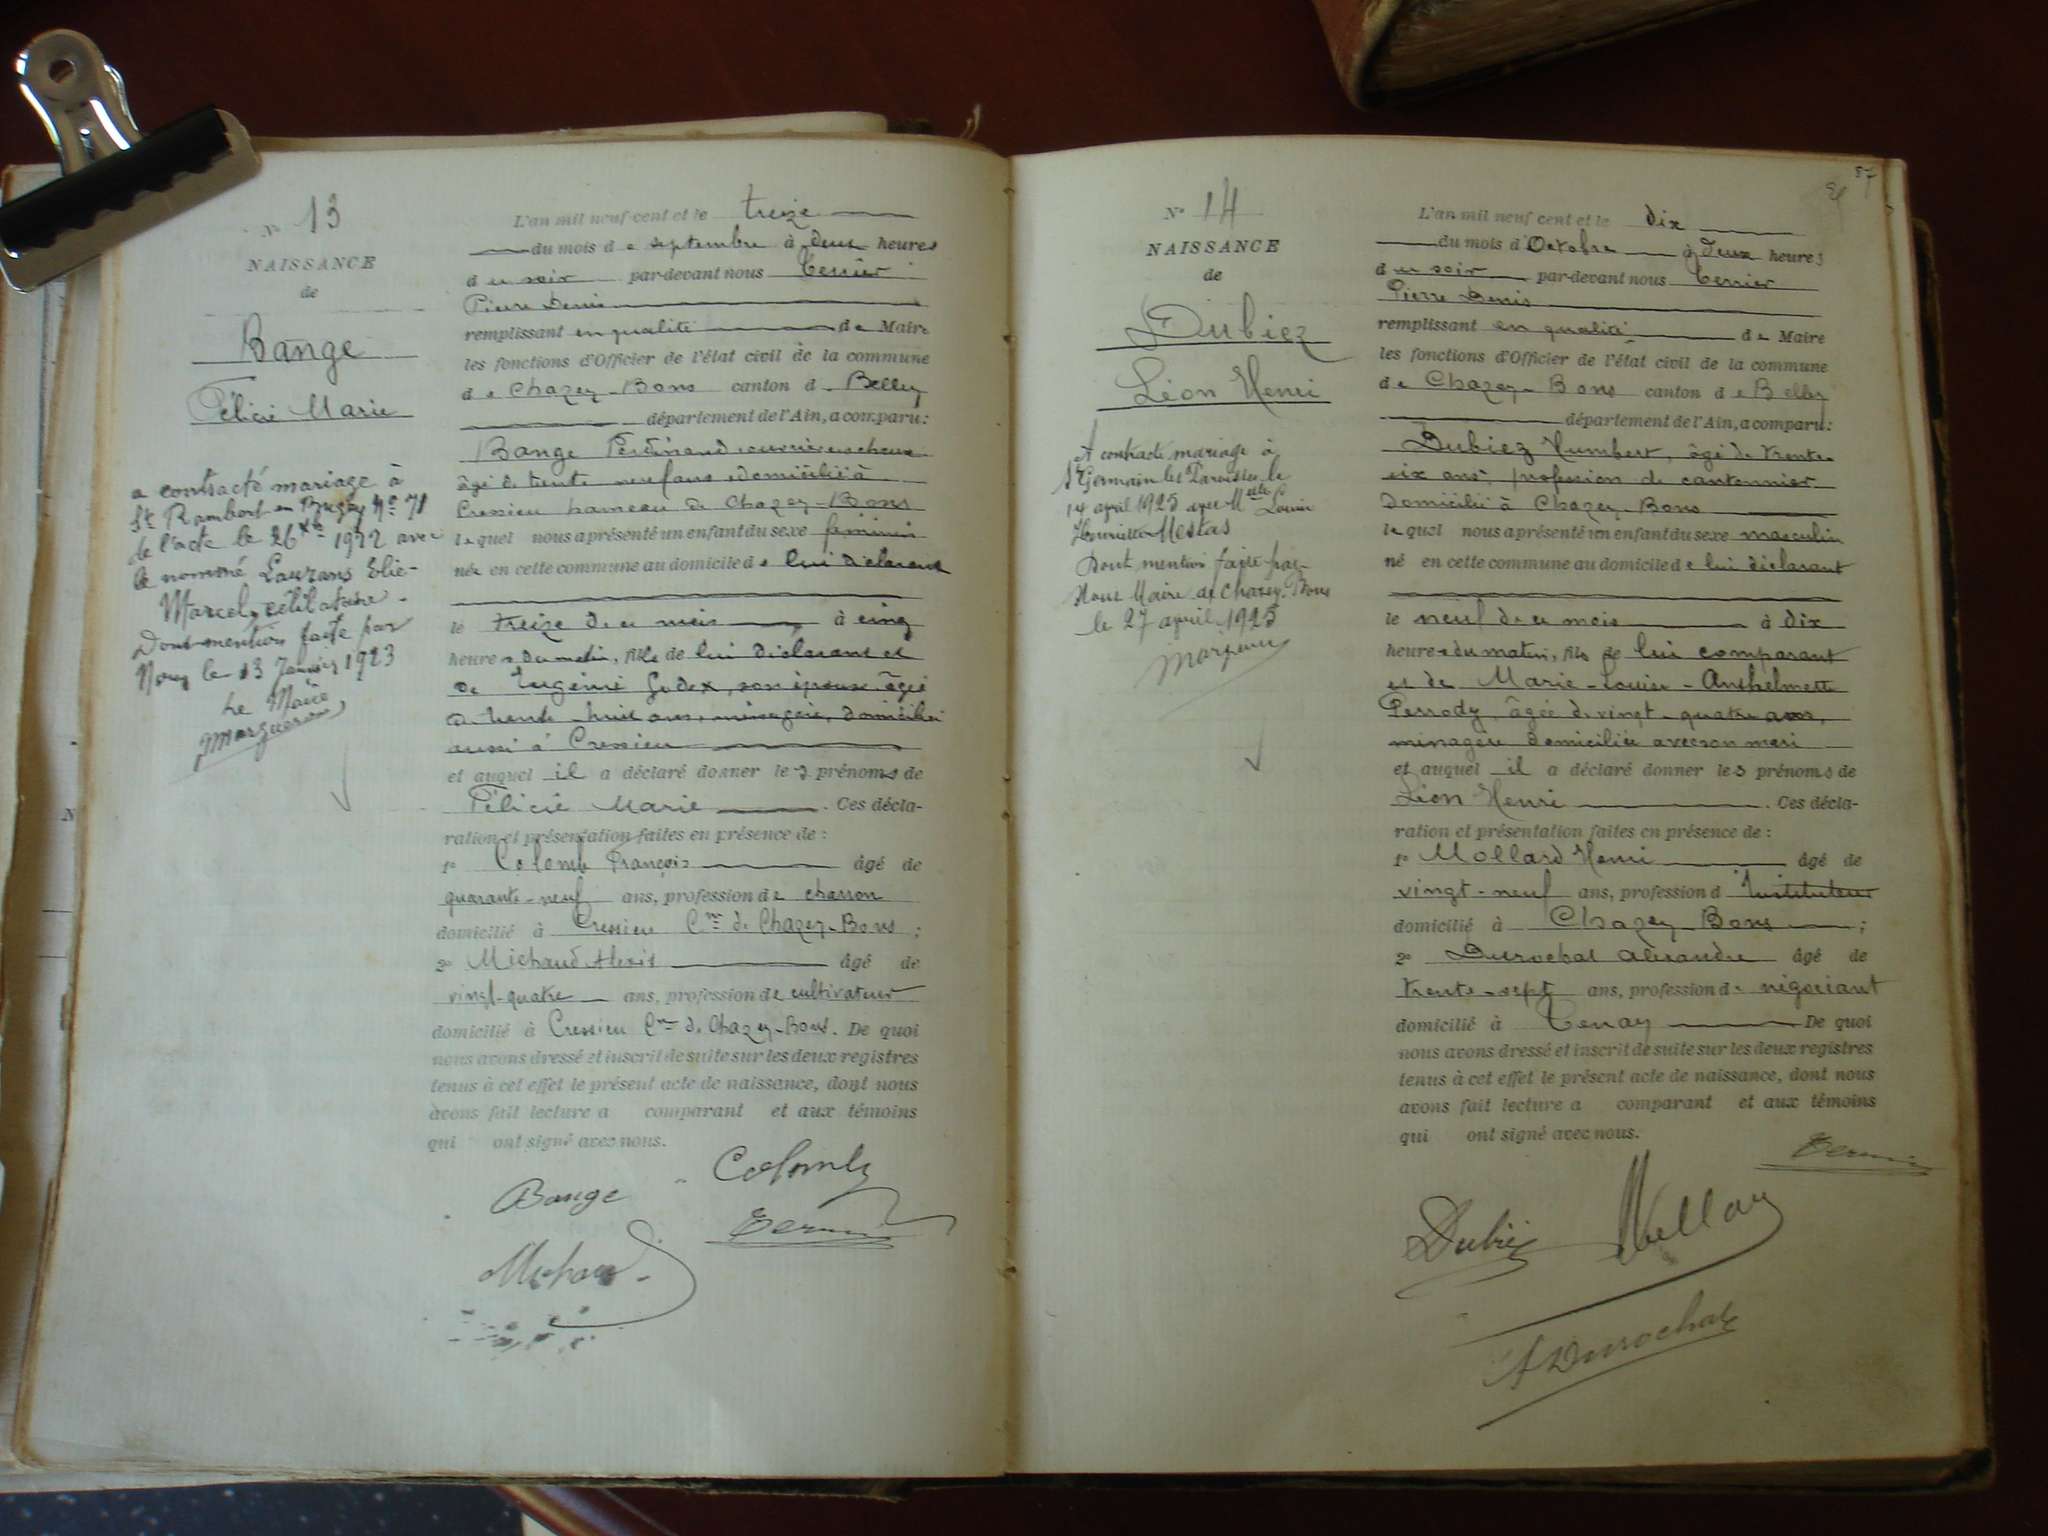 N° 13
NAISSANCE
de
Bange
Félicie Marie
a contracté mariage à
St Rambert en Bugey N° 71
de l'acte le 26 Xbre 1922 avec
le nommé Lauzans Elie-
Marcel, célibataire.
Dont mention faite par
Nous le 13 Janvier 1923
Le Maire
L'an mil neuf cent et le treize
du mois de septembre à deux heures
du soir par-devant nous Terrier
Pierre Denis
remplissant en qualité de Maire
les fonctions d'Officier de l'état civil de la commune
de Chazey-Bons canton de Belley
département de l'Ain, a comparu:
Bange Ferdinand ouvrier
âgé de trente neuf ans domicilié à
Cressieu hameau de Chazey-Bons
lequel nous a présenté un enfant du sexe féminin
née en cette commune au domicile de lui déclarant
le treize de ce mois à cinq
heures du matin, fils de lui déclarant et
de Eugénie Godex, son épouse âgée
de trente-huit ans, ménagère, domiciliée
aussi à Cressieu
et auquel il a déclaré donner les prénoms de
Félicie Marie. Ces décla-
ration et présentation faites en présence de :
1° Colomb François âgé de
quarante-neuf ans, profession de charron
domicilié à Cressieu Cne de Chazey-Bons ;
2° Michaud Alexis âgé de
vingt-quatre ans, profession de cultivateur
domicilié à Cressieu Cne de Chazey-Bons. De quoi
nous avons dressé et inscrit de suite sur les deux registres
tenus à cet effet le présent acte de naissance, dont nous
avons fait lecture a comparant et aux témoins
qui ont signé avec nous.
Colomb
Bange
Terrier
Michaud
87
N° 14
NAISSANCE
de
Dubiez
Léon Henri
A contracté mariage à
St Germain les Paroisses le
14 april 1925 avec Melle Louise
Henriette Mestas
Dont mention faite par
Nous Maire de Chazey-Bons
le 27 april 1925
L'an mil neuf cent et le dix
du mois d'Octobre à deux heures
du soir par-devant nous Terrier
Pierre Denis
remplissant en qualité de Maire
les fonctions d'Officier de l'état civil de la commune
de Chazey-Bons canton de Belley
département de l'Ain, a comparu:
Dubiez Humbert, âgé de trente
six ans, profession de cantonnier
domicilié à Chazey-Bons
lequel nous a présenté un enfant du sexe masculin
né en cette commune au domicile de lui déclarant
le neuf de ce mois à dix
heures du matin, fils de lui comparant
et de Marie-Louise-Anthelmette
Perrody, âgée de vingt-quatre ans,
ménagère domiciliée avec son mari
et auquel il a déclaré donner les prénoms de
Léon Henri. Ces décla-
ration et présentation faites en présence de :
1° Mollard Henri âgé de
vingt-neuf ans, profession d'Instituteur
domicilié à Chazey-Bons ;
2° Durochat Alexandre âgé de
trente-sept ans, profession de négociant
domicilié à Tenay De quoi
nous avons dressé et inscrit de suite sur les deux registres
tenus à cet effet le présent acte de naissance, dont nous
avons fait lecture a comparant et aux témoins
qui ont signé avec nous.
Terrier
Dubiez Mollard
A Durochat